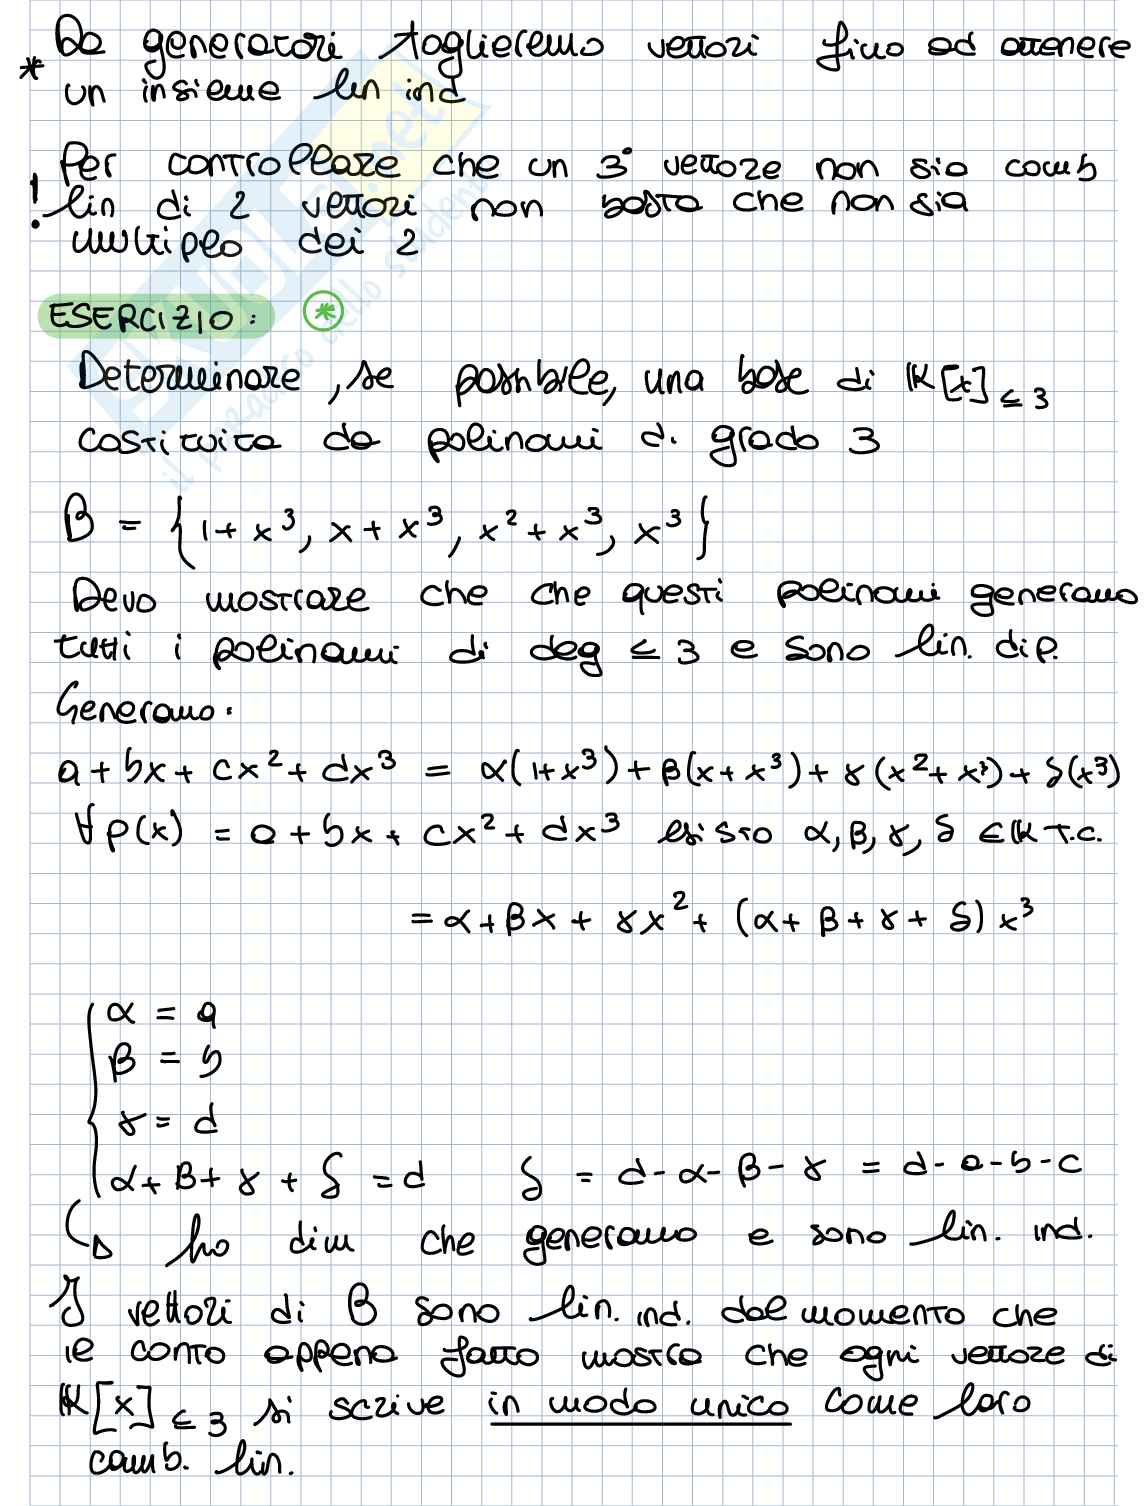 Da generatori toglieremo vettori fino ad ottenere
* un insieme lin ind
Per controllare che un 3° vettore non sia comb
! lin di 2 vettori non basta che non sia
multiplo dei 2
ESERCIZIO: *
Determinare, se possibile, una base di K[x]≤3
costituita da polinomi di grado 3
B = {1+x³, x+x³, x²+x³, x³}
Devo mostrare che che questi polinomi generano
tutti i polinomi di deg ≤ 3 e sono lin. dip.
Generano.
a+bx+cx²+dx³ = α(1+x³)+β(x+x³)+γ(x²+x³)+δ(x³)
∀p(x) = a+bx+cx²+dx³ esisto α,β,γ,δ ∈K t.c.
= α+βx+γx²+(α+β+γ+δ)x³
α = a
β = b
γ = d
α+β+γ+δ = d δ = d-α-β-γ = d-a-b-c
↳ ho dim che generano e sono lin. ind.
I vettori di B sono lin. ind. dal momento che
il conto appena fatto mostra che ogni vettore di
K[x]≤3 si scrive in modo unico come loro
comb. lin.
SKUOLA.net
il paradiso dello studente